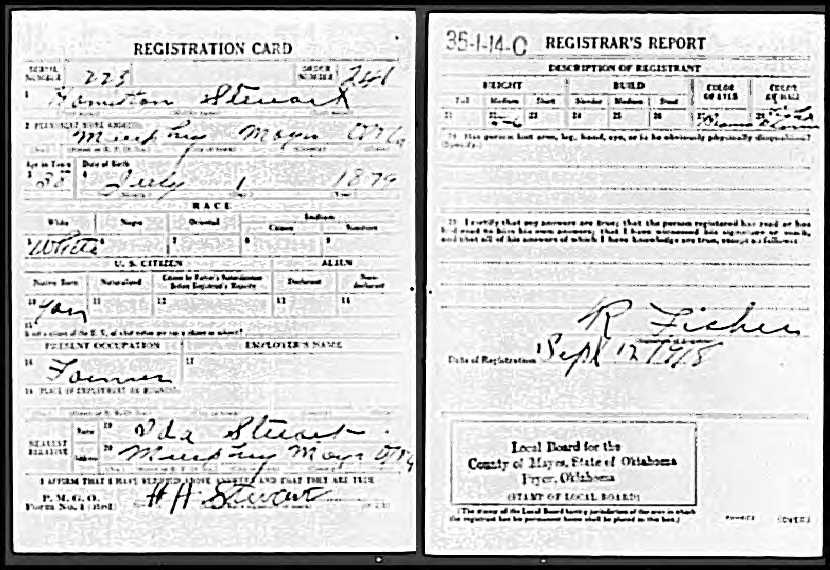 REGISTRATION CARD
SERIAL NUMBER 223 ORDER NUMBER 241
1 Hamilton Stewart
2 PERMANENT HOME ADDRESS
Murphy Mays Okla
Age in Years Date of Birth
3 4 July 1 1879
RACE
White Negro Oriental Indian
Citizen Noncitizen
5 White 6 7 8 9
U. S. CITIZEN ALIEN
Native Born Naturalized Citizen by Father's Naturalization Before Registrant's Majority Declarant Non-declarant
10 Yes 11 12 13 14
15 If not a citizen of the U. S., of what nation are you a citizen or subject?
PRESENT OCCUPATION EMPLOYER'S NAME
16 Farmer 17
18 PLACE OF EMPLOYMENT OR BUSINESS
NEAREST RELATIVE Name 19 Stewart
Address 20 Murphy Mays Okla
I AFFIRM THAT I HAVE VERIFIED ABOVE ANSWERS AND THAT THEY ARE TRUE
P. M. G. O.
Form No. 1 (Red) H H Stewart
35-1-14-C REGISTRAR'S REPORT
DESCRIPTION OF REGISTRANT
HEIGHT BUILD COLOR OF EYES COLOR OF HAIR
Tall Medium Short Slender Medium Stout
21 22 23 24 25 26 27 28
29 Has person lost arm, leg, hand, eye, or is he obviously physically disqualified?
(Specify.)
30 I certify that my answers are true; that the person registered has read or has
had read to him his own answers; that I have witnessed his signature or mark,
and that all of his answers of which I have knowledge are true, except as follows:
R Fisher
Date of Registration Sept 12 1918
Local Board for the
County of Mayes, State of Oklahoma
Pryor, Oklahoma
(STAMP OF LOCAL BOARD)
(The stamp of the Local Board having jurisdiction of the area in which
the registrant has his permanent home shall be placed in this box.)
(OVER)